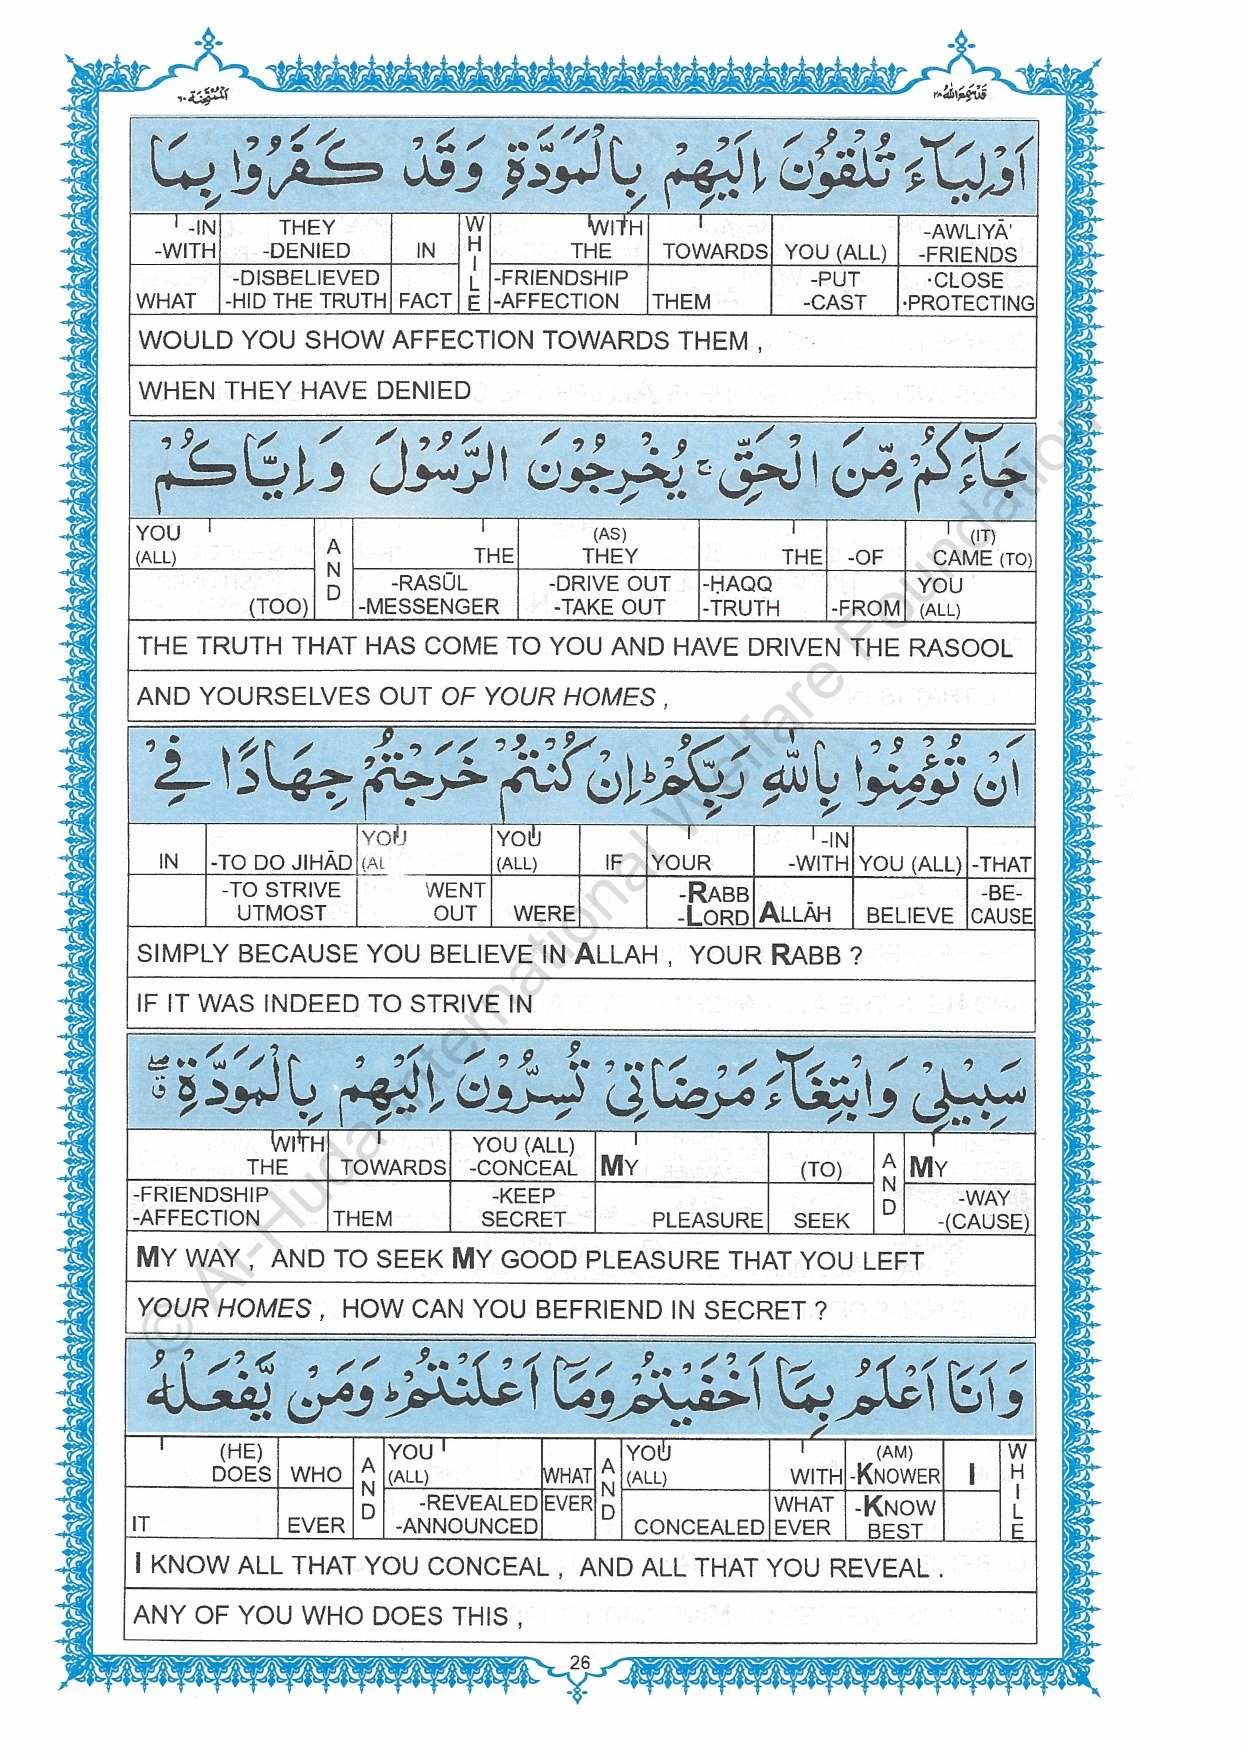 قَدْ سَمِعَ اللّٰهُ ٢٨
اَلْمُمْتَحِنَة ٦٠
اَوْلِيَآءَ تُلْقُوْنَ اِلَيْهِمْ بِالْمَوَدَّةِ وَقَدْ كَفَرُوْا بِمَا
-IN THEY WHILE WITH -AWLIYĀ'
-WITH -DENIED IN THE TOWARDS YOU (ALL) -FRIENDS
-DISBELIEVED -FRIENDSHIP -PUT ·CLOSE
WHAT -HID THE TRUTH FACT -AFFECTION THEM -CAST ·PROTECTING
WOULD YOU SHOW AFFECTION TOWARDS THEM ,
WHEN THEY HAVE DENIED
جَآءَكُمْ مِّنَ الْحَقِّ ۚ يُخْرِجُوْنَ الرَّسُوْلَ وَاِيَّاكُمْ
YOU AND (AS) (IT)
(ALL) THE THEY THE -OF CAME (TO)
-RASŪL -DRIVE OUT -ḤAQQ YOU
(TOO) -MESSENGER -TAKE OUT -TRUTH -FROM (ALL)
THE TRUTH THAT HAS COME TO YOU AND HAVE DRIVEN THE RASOOL
AND YOURSELVES OUT OF YOUR HOMES ,
اَنْ تُؤْمِنُوْا بِاللّٰهِ رَبِّكُمْ ؕ اِنْ كُنْتُمْ خَرَجْتُمْ جِهَادًا فِيْ
YOU YOU -IN
IN -TO DO JIHĀD (AL (ALL) IF YOUR -WITH YOU (ALL) -THAT
-TO STRIVE WENT -RABB -BE-
UTMOST OUT WERE -LORD ALLĀH BELIEVE CAUSE
SIMPLY BECAUSE YOU BELIEVE IN ALLAH , YOUR RABB ?
IF IT WAS INDEED TO STRIVE IN
سَبِيْلِيْ وَابْتِغَآءَ مَرْضَاتِيْ تُسِرُّوْنَ اِلَيْهِمْ بِالْمَوَدَّةِ
WITH YOU (ALL) AND
THE TOWARDS -CONCEAL MY (TO) MY
-FRIENDSHIP -KEEP -WAY
-AFFECTION THEM SECRET PLEASURE SEEK -(CAUSE)
MY WAY , AND TO SEEK MY GOOD PLEASURE THAT YOU LEFT
YOUR HOMES , HOW CAN YOU BEFRIEND IN SECRET ?
وَاَنَا اَعْلَمُ بِمَآ اَخْفَيْتُمْ وَمَآ اَعْلَنْتُمْ ؕ وَمَنْ يَّفْعَلْهُ
(HE) AND YOU AND YOU (AM) WHILE
DOES WHO (ALL) WHAT (ALL) WITH -KNOWER I
-REVEALED EVER WHAT -KNOW
IT EVER -ANNOUNCED CONCEALED EVER BEST
I KNOW ALL THAT YOU CONCEAL , AND ALL THAT YOU REVEAL .
ANY OF YOU WHO DOES THIS ,
26
© Al-Huda International Welfare Foundation